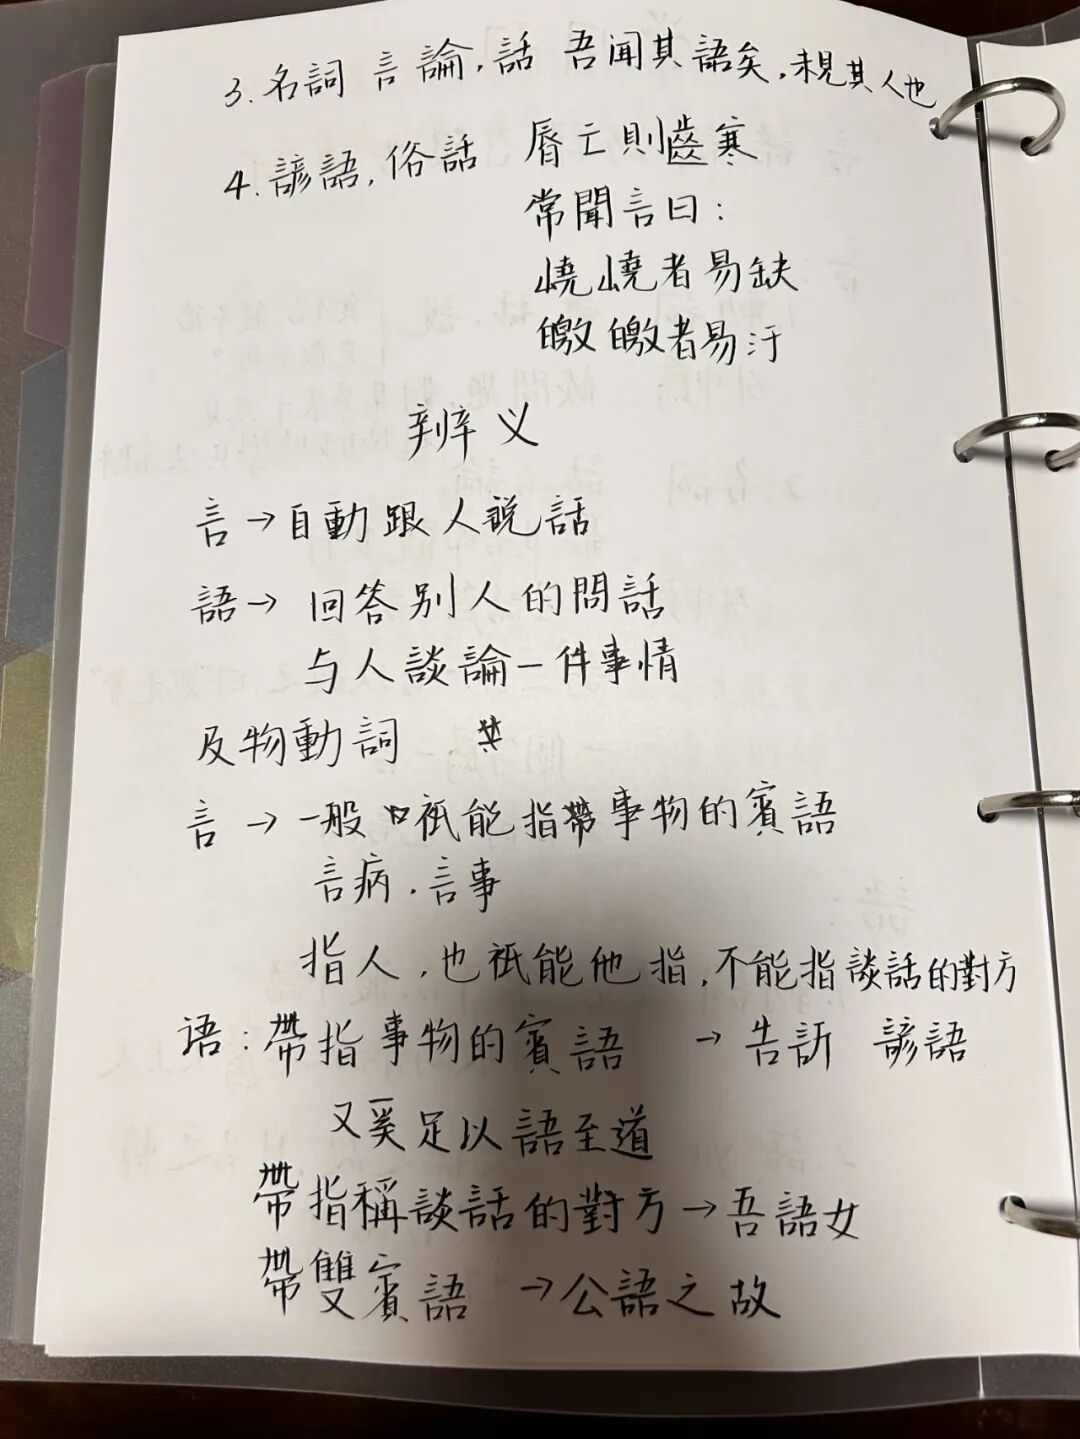 3. 名詞 言論，話 吾闻其語矣，未見其人也
4. 諺語，俗話 唇亡則齒寒
常聞言曰：
嶢嶢者易缺
皦皦者易汙
辨义
言→自動跟人説話
語→ 回答别人的問話
与人談論一件事情
及物動詞
言→一般祇能指帶事物的賓語
言病．言事
指人，也祇能他指，不能指談話的對方
语：帶指事物的賓語 → 告訴 諺語
又奚足以語至道
帶指稱談話的對方→吾語女
帶雙賓語 →公語之故